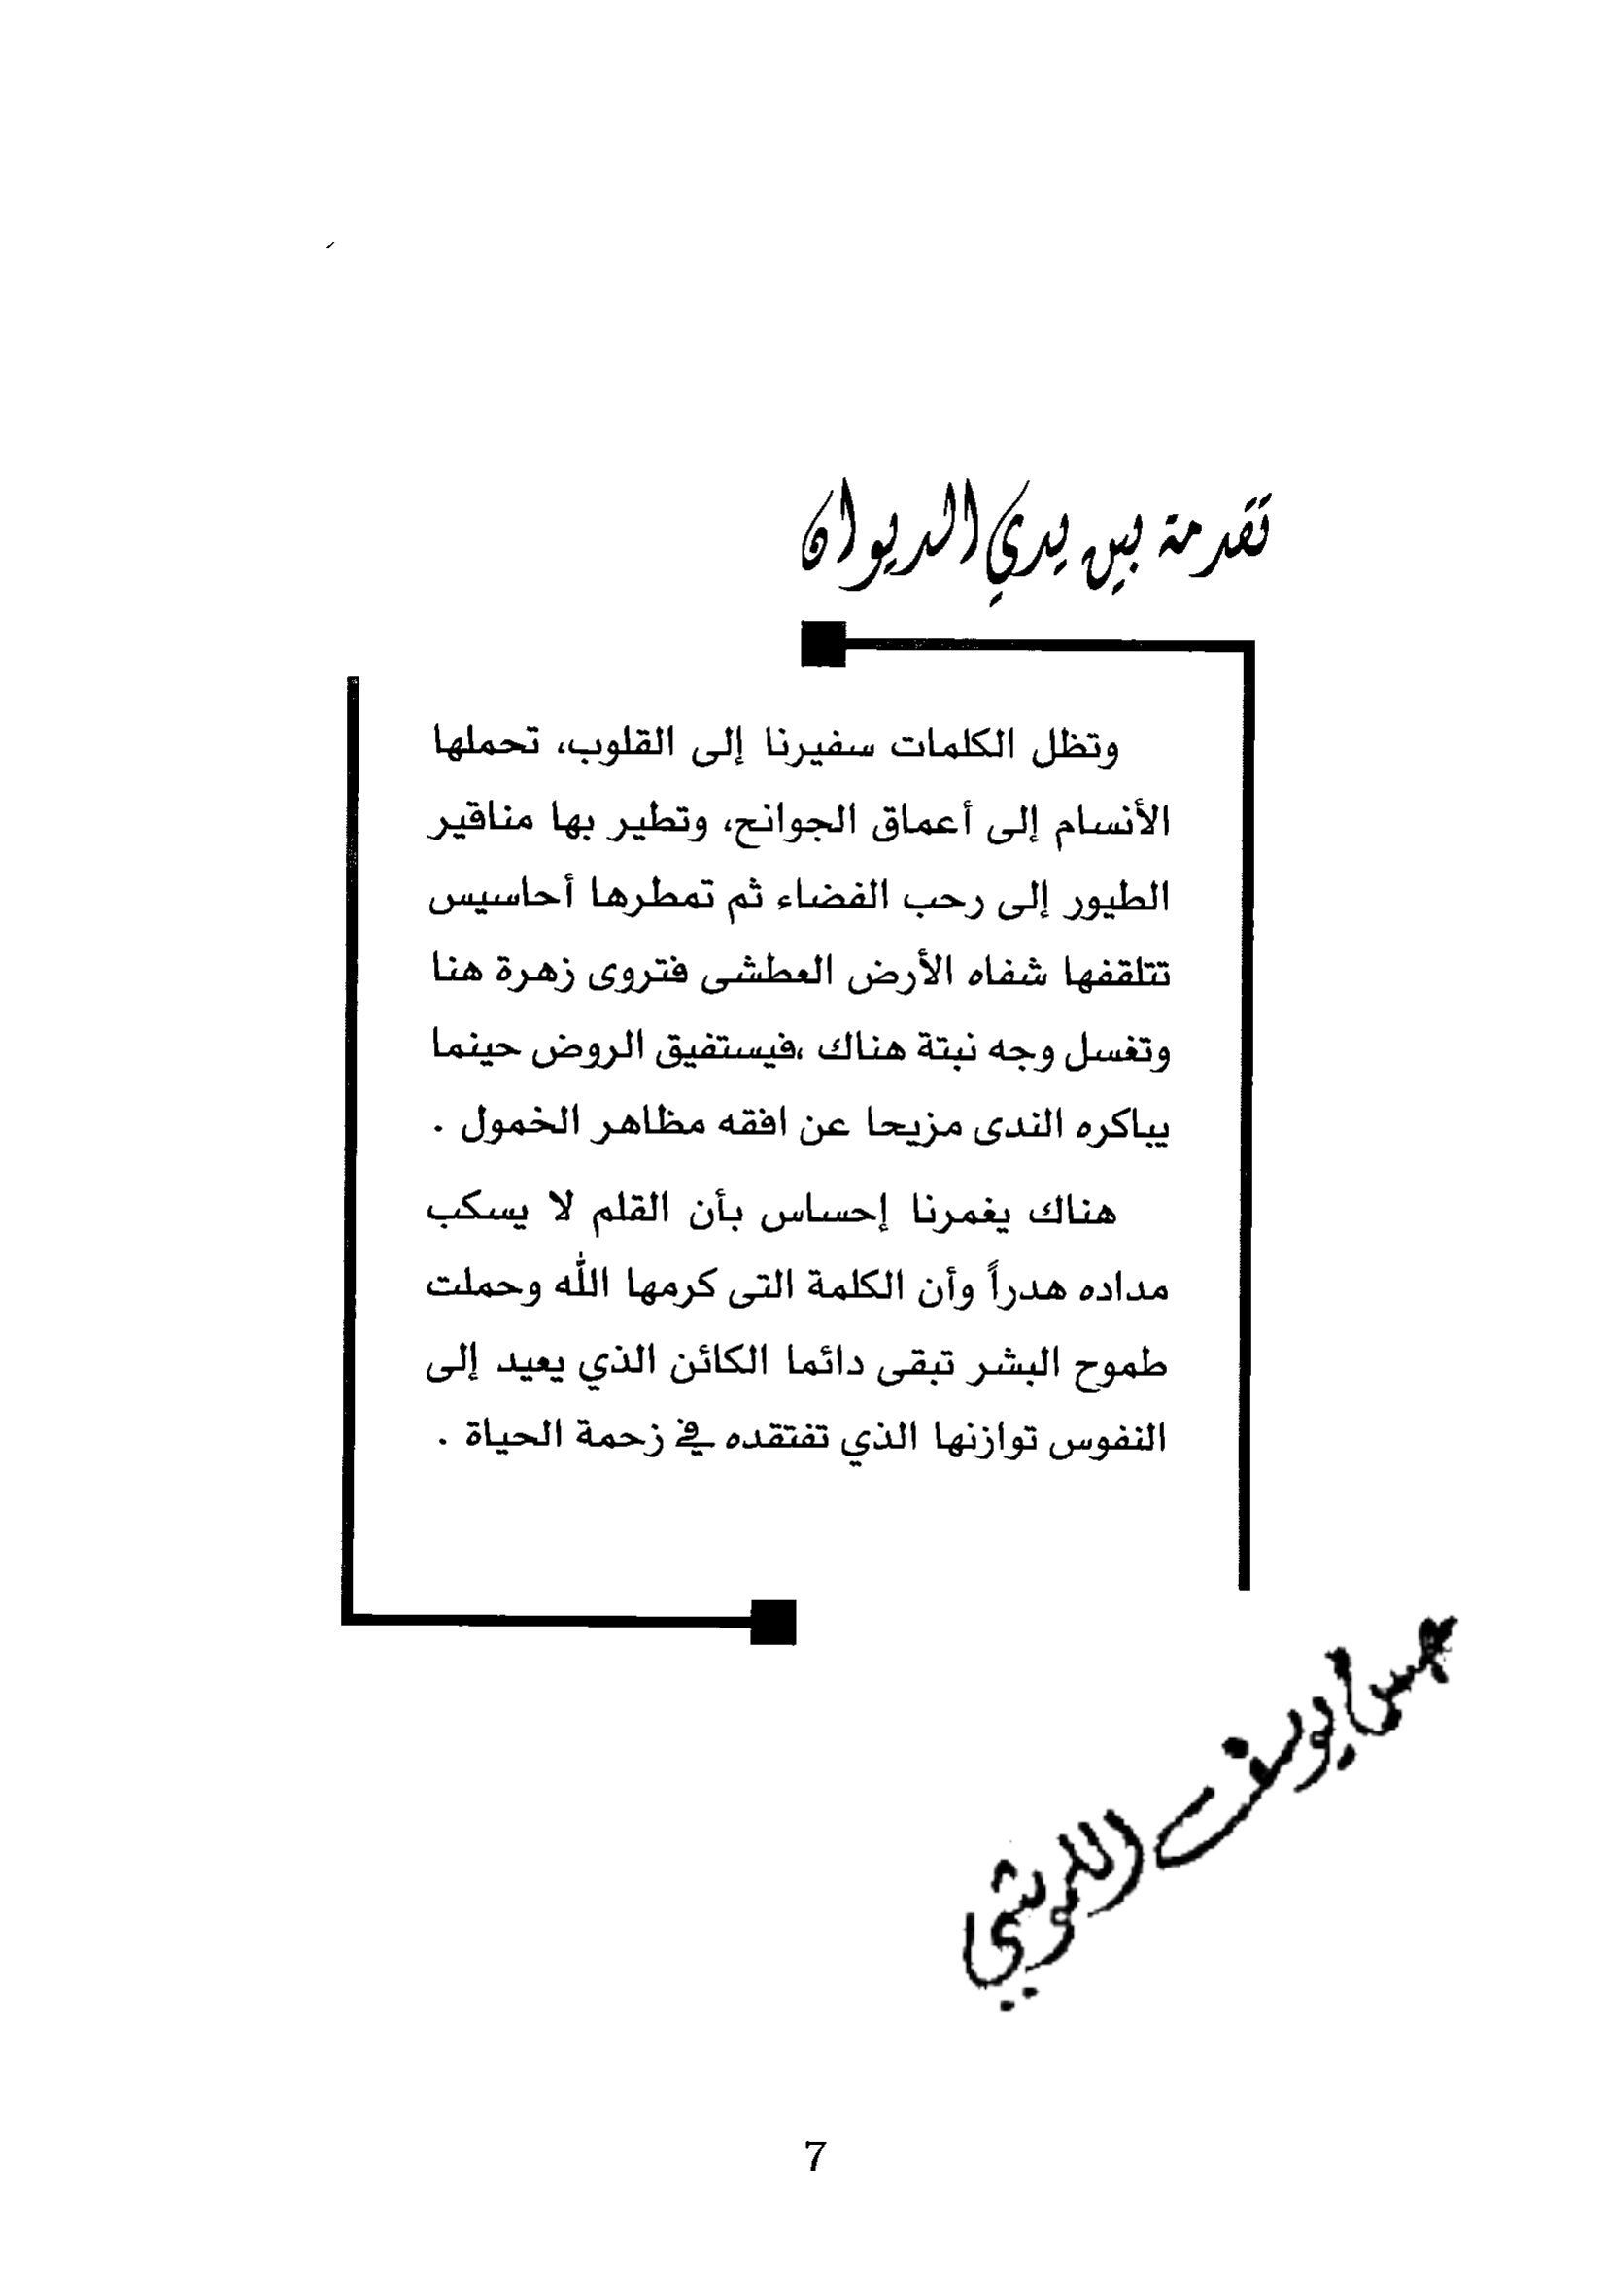 تقدمة بين يدي الديوان
وتظل الكلمات سفيرنا إلى القلوب، تحملها
الأنسام إلى أعماق الجوانح، وتطير بها مناقير
الطيور إلى رحب الفضاء ثم تمطرها أحاسيس
تتلقفها شفاه الأرض العطشى فتروى زهرة هنا
وتغسل وجه نبتة هناك ،فيستفيق الروض حينما
يباكره الندى مزيحا عن افقه مظاهر الخمول .
هناك يغمرنا إحساس بأن القلم لا يسكب
مداده هدراً وأن الكلمة التى كرمها الله وحملت
طموح البشر تبقى دائما الكائن الذي يعيد إلى
النفوس توازنها الذي تفتقده في زحمة الحياة .
يوسف
7